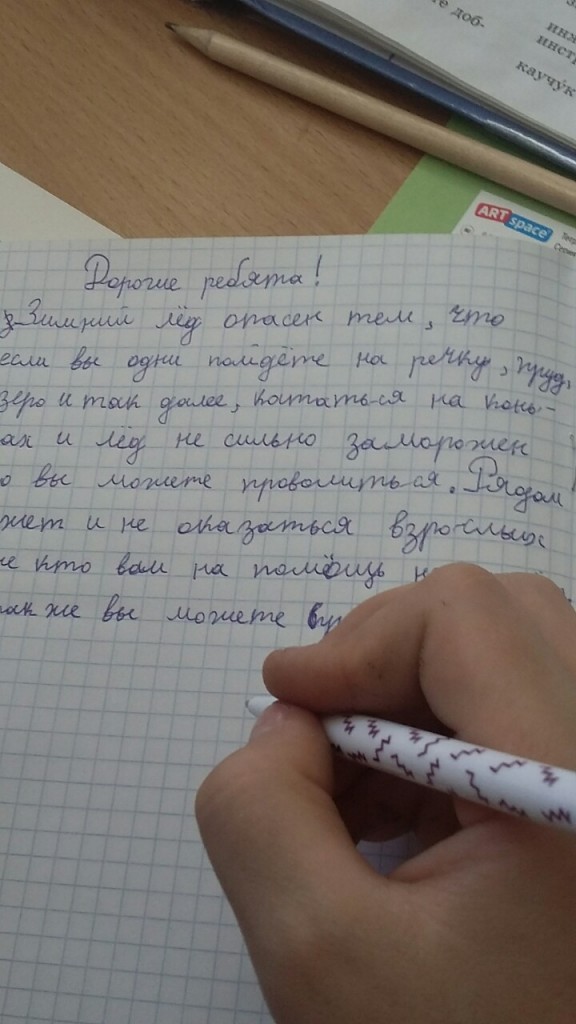 те доб-
инж
инстр
каучук
ART space
Дорогие ребята!
Зимний лёд опасен тем, что
если вы одни пойдёте на речку, пруд,
зеро и так далее, кататься на конь-
ах и лёд не сильно заморожен
о вы можете провалиться. Рядом
жет и не оказаться взрослых
не кто вам на помощь
так же вы можете